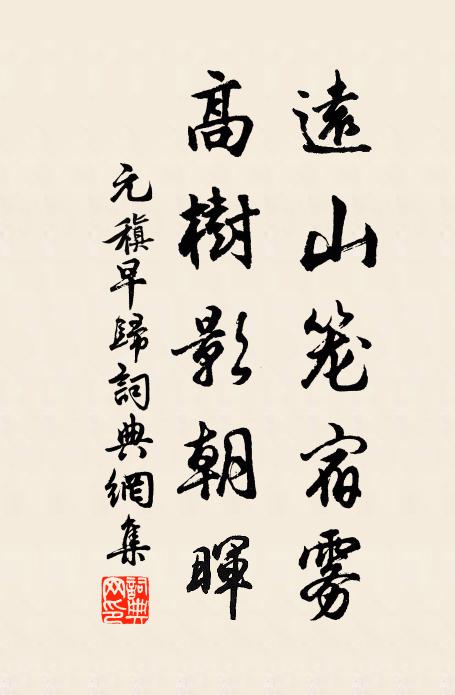 遠山笼宿雾
高樹影朝暉
元稹早歸詞典網集
詞典网印